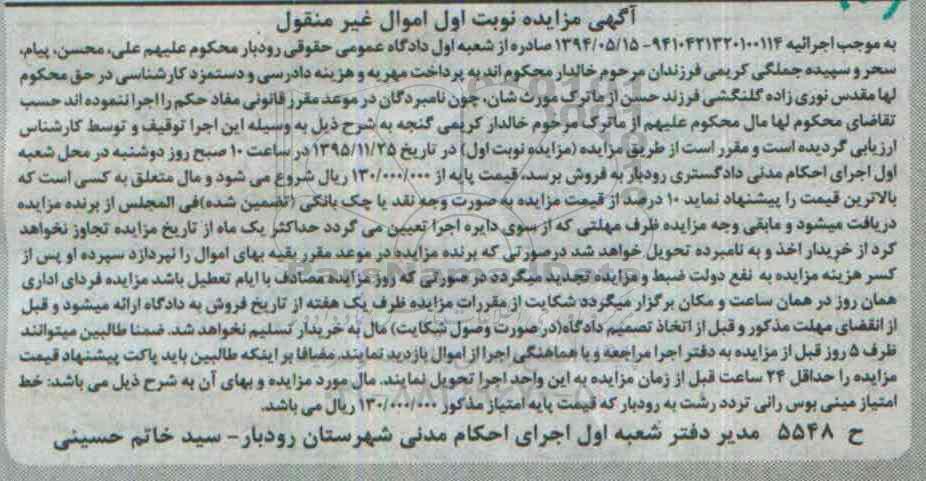 آگهی مزایده نوبت اول اموال غیر منقول
به موجب اجرائیه ۹۴۱۰۴۲۱۳۲۰۱۰۰۱۱۴-۱۳۹۴/۰۵/۱۵ صادره از شعبه اول دادگاه عمومی حقوقی رودبار محکوم علیهم علی، محسن، پیام،
سحر و سپیده جملگی کریمی فرزندان مرحوم خالدار محکوم اند به پرداخت مهریه و هزینه دادرسی و دستمزد کارشناسی در حق محکوم
لها مقدس نوری زاده گلنگشی فرزند حسن از ماترک مورث شان، چون نامبردگان در موعد مقرر قانونی مفاد حکم را اجرا ننموده اند حسب
تقاضای محکوم لها مال محکوم علیهم از ماترک مرحوم خالدار کریمی گنجه به شرح ذیل به وسیله این اجرا توقیف و توسط کارشناس
ارزیابی گردیده است و مقرر است از طریق مزایده (مزایده نوبت اول) در تاریخ ۱۳۹۵/۱۱/۲۵ در ساعت ۱۰ صبح روز دوشنبه در محل شعبه
اول اجرای احکام مدنی دادگستری رودبار به فروش برسد، قیمت پایه از ۱۳۰/۰۰۰/۰۰۰ ریال شروع می شود و مال متعلق به کسی است که
بالاترین قیمت را پیشنهاد نماید ۱۰ درصد از قیمت مزایده به صورت وجه نقد یا چک بانکی (تضمین شده)فی المجلس از برنده مزایده
دریافت میشود و مابقی وجه مزایده ظرف مهلتی که از سوی دایره اجرا تعیین می گردد حداکثر یک ماه از تاریخ مزایده تجاوز نخواهد
کرد از خریدار اخذ و به نامبرده تحویل خواهد شد درصورتی که برنده مزایده در موعد مقرر بقیه بهای اموال را نپردازد سپرده او پس از
کسر هزینه مزایده به نفع دولت ضبط و مزایده تجدید میگردد در صورتی که روز مزایده مصادف با ایام تعطیل باشد مزایده فردای اداری
همان روز در همان ساعت و مکان برگزار میگردد شکایت از مقررات مزایده ظرف یک هفته از تاریخ فروش به دادگاه ارائه میشود و قبل
از انقضای مهلت مذکور و قبل از اتخاذ تصمیم دادگاه(در صورت وصول شکایت) مال به خریدار تسلیم نخواهد شد. ضمنا طالبین میتوانند
ظرف ۵ روز قبل از مزایده به دفتر اجرا مراجعه و با هماهنگی اجرا از اموال بازدید نمایند. مضافا بر اینکه طالبین باید پاکت پیشنهاد قیمت
مزایده را حداقل ۲۴ ساعت قبل از زمان مزایده به این واحد اجرا تحویل نمایند. مال مورد مزایده و بهای آن به شرح ذیل می باشد: خط
امتیاز مینی بوس رانی تردد رشت به رودبار که قیمت پایه امتیاز مذکور ۱۳۰/۰۰۰/۰۰۰ ریال می باشد.
ح ۵۵۴۸ مدیر دفتر شعبه اول اجرای احکام مدنی شهرستان رودبار- سید خاتم حسینی